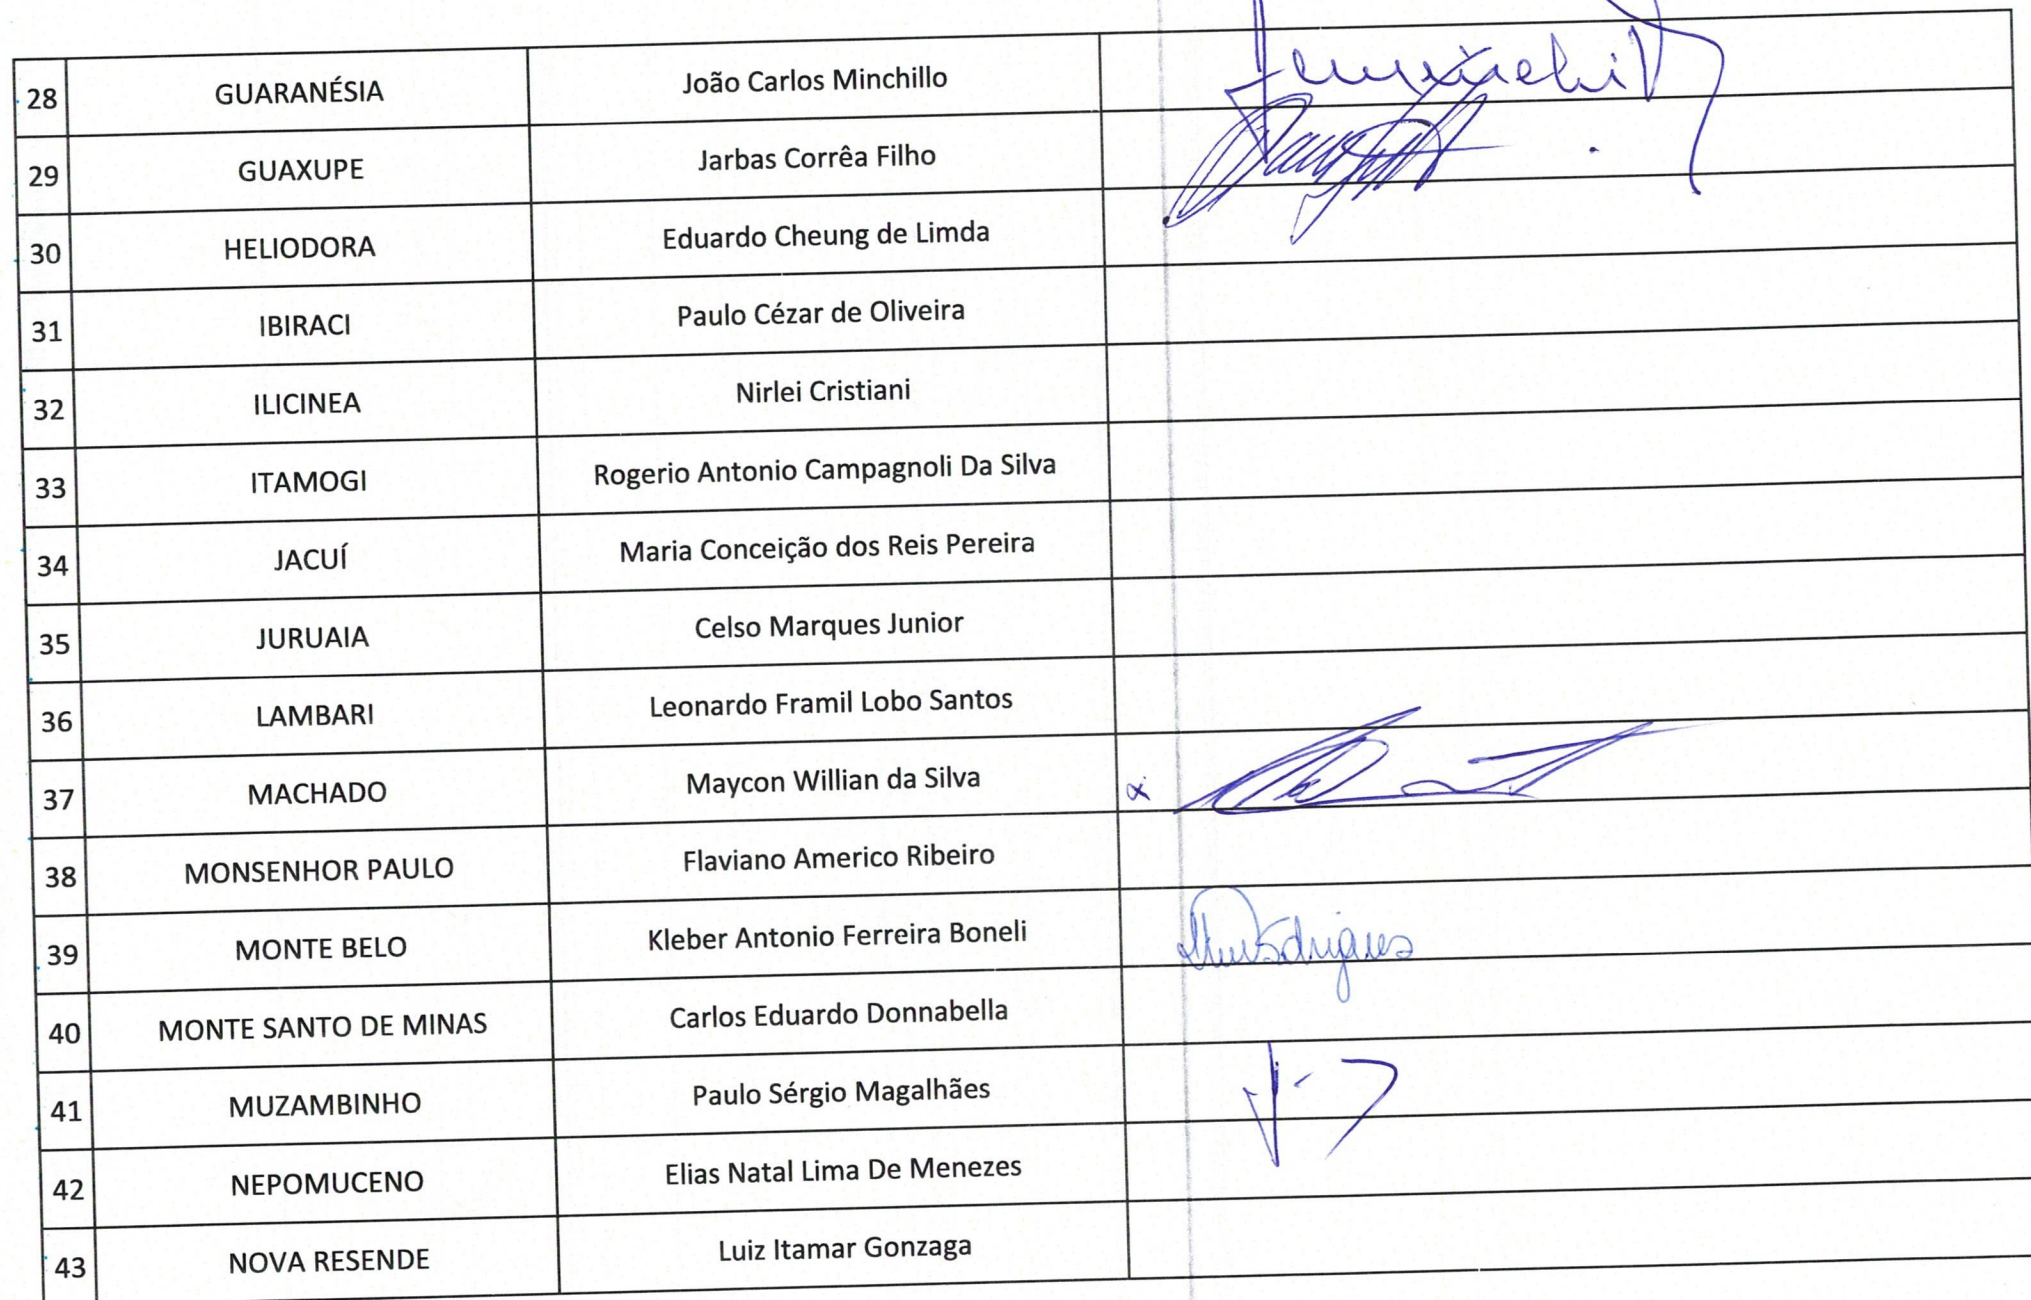 28 GUARANÉSIA João Carlos Minchillo
29 GUAXUPE Jarbas Corrêa Filho
30 HELIODORA Eduardo Cheung de Limda
31 IBIRACI Paulo Cézar de Oliveira
32 ILICINEA Nirlei Cristiani
33 ITAMOGI Rogerio Antonio Campagnoli Da Silva
34 JACUÍ Maria Conceição dos Reis Pereira
35 JURUAIA Celso Marques Junior
36 LAMBARI Leonardo Framil Lobo Santos
37 MACHADO Maycon Willian da Silva x
38 MONSENHOR PAULO Flaviano Americo Ribeiro
39 MONTE BELO Kleber Antonio Ferreira Boneli
40 MONTE SANTO DE MINAS Carlos Eduardo Donnabella
41 MUZAMBINHO Paulo Sérgio Magalhães
42 NEPOMUCENO Elias Natal Lima De Menezes
43 NOVA RESENDE Luiz Itamar Gonzaga